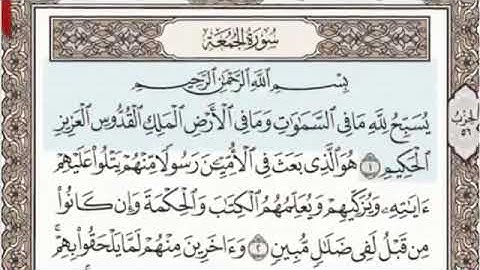 سُورَةُ الجُمُعَةِ
بِسْمِ ٱللَّهِ ٱلرَّحْمَٰنِ ٱلرَّحِيمِ
يُسَبِّحُ لِلَّهِ مَا فِي ٱلسَّمَٰوَٰتِ وَمَا فِي ٱلْأَرْضِ ٱلْمَلِكِ ٱلْقُدُّوسِ ٱلْعَزِيزِ
ٱلْحَكِيمِ ١ هُوَ ٱلَّذِي بَعَثَ فِي ٱلْأُمِّيِّـۧنَ رَسُولًا مِّنْهُمْ يَتْلُوا۟ عَلَيْهِمْ
ءَايَٰتِهِۦ وَيُزَكِّيهِمْ وَيُعَلِّمُهُمُ ٱلْكِتَٰبَ وَٱلْحِكْمَةَ وَإِن كَانُوا۟
مِن قَبْلُ لَفِي ضَلَٰلٍ مُّبِينٍ ٢ وَءَاخَرِينَ مِنْهُمْ لَمَّا يَلْحَقُوا۟ بِهِمْ
الحزب
٥٦